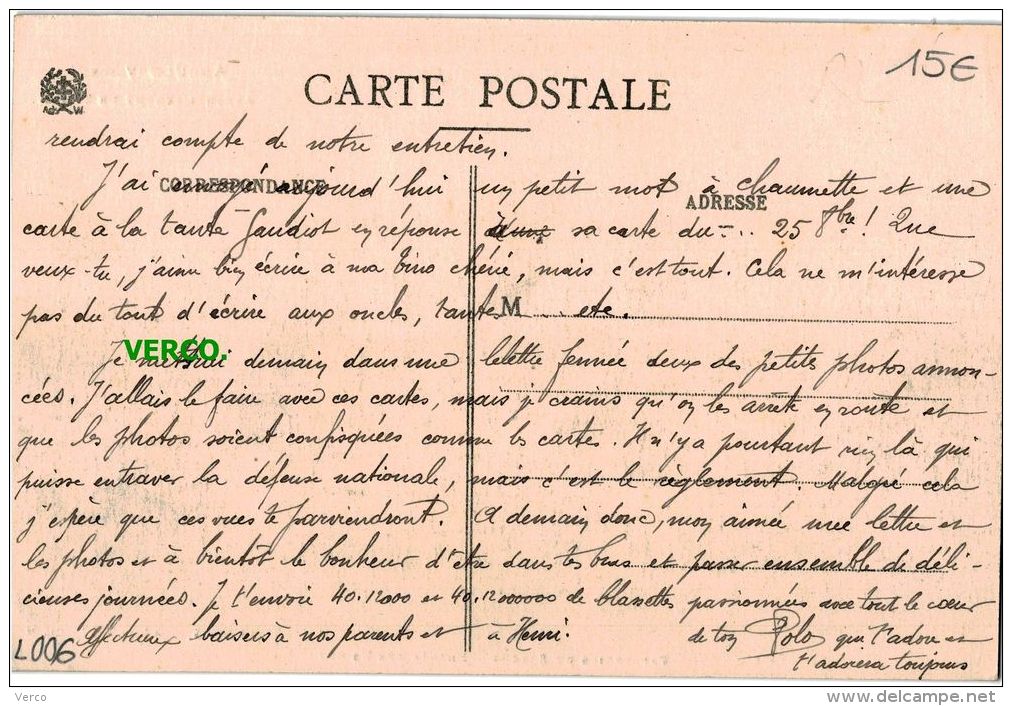 15€
CARTE POSTALE
rendrai compte de notre entretien.
CORRESPONDANCE
ADRESSE
J'ai envoyé aujourd'hui un petit mot à Chaumette et une
carte à la tante Gaudiot en réponse à sa carte du 25 8bre! Que
veux-tu, j'aime bien écrire à ma bino chérie, mais c'est tout. Cela ne m'intéresse
pas du tout d'écrire aux oncles, tantes... etc.
M
VERCO.
Je mettrai demain dans une lettre fermée deux des petits photos annon-
cées. J'allais le faire avec ces cartes, mais je crains qu'on les arrête en route et
que les photos soient confisquées comme les cartes. Il n'y a pourtant rien là qui
puisse entraver la défense nationale, mais c'est le règlement. Malgré cela
j'espère que ces vues te parviendront. A demain donc, mon aimée une lettre et
les photos et à bientôt le bonheur d'être dans tes bras et passer ensemble de déli-
cieuses journées. Je t'envoie 40.12000 et 40.12000000 de blassottes passionnées avec tout le cœur
Affectueux baisers à nos parents et à Henri. de ton Polo qui t'adore et
t'adorera toujours
L006
Verco
delcampe.net